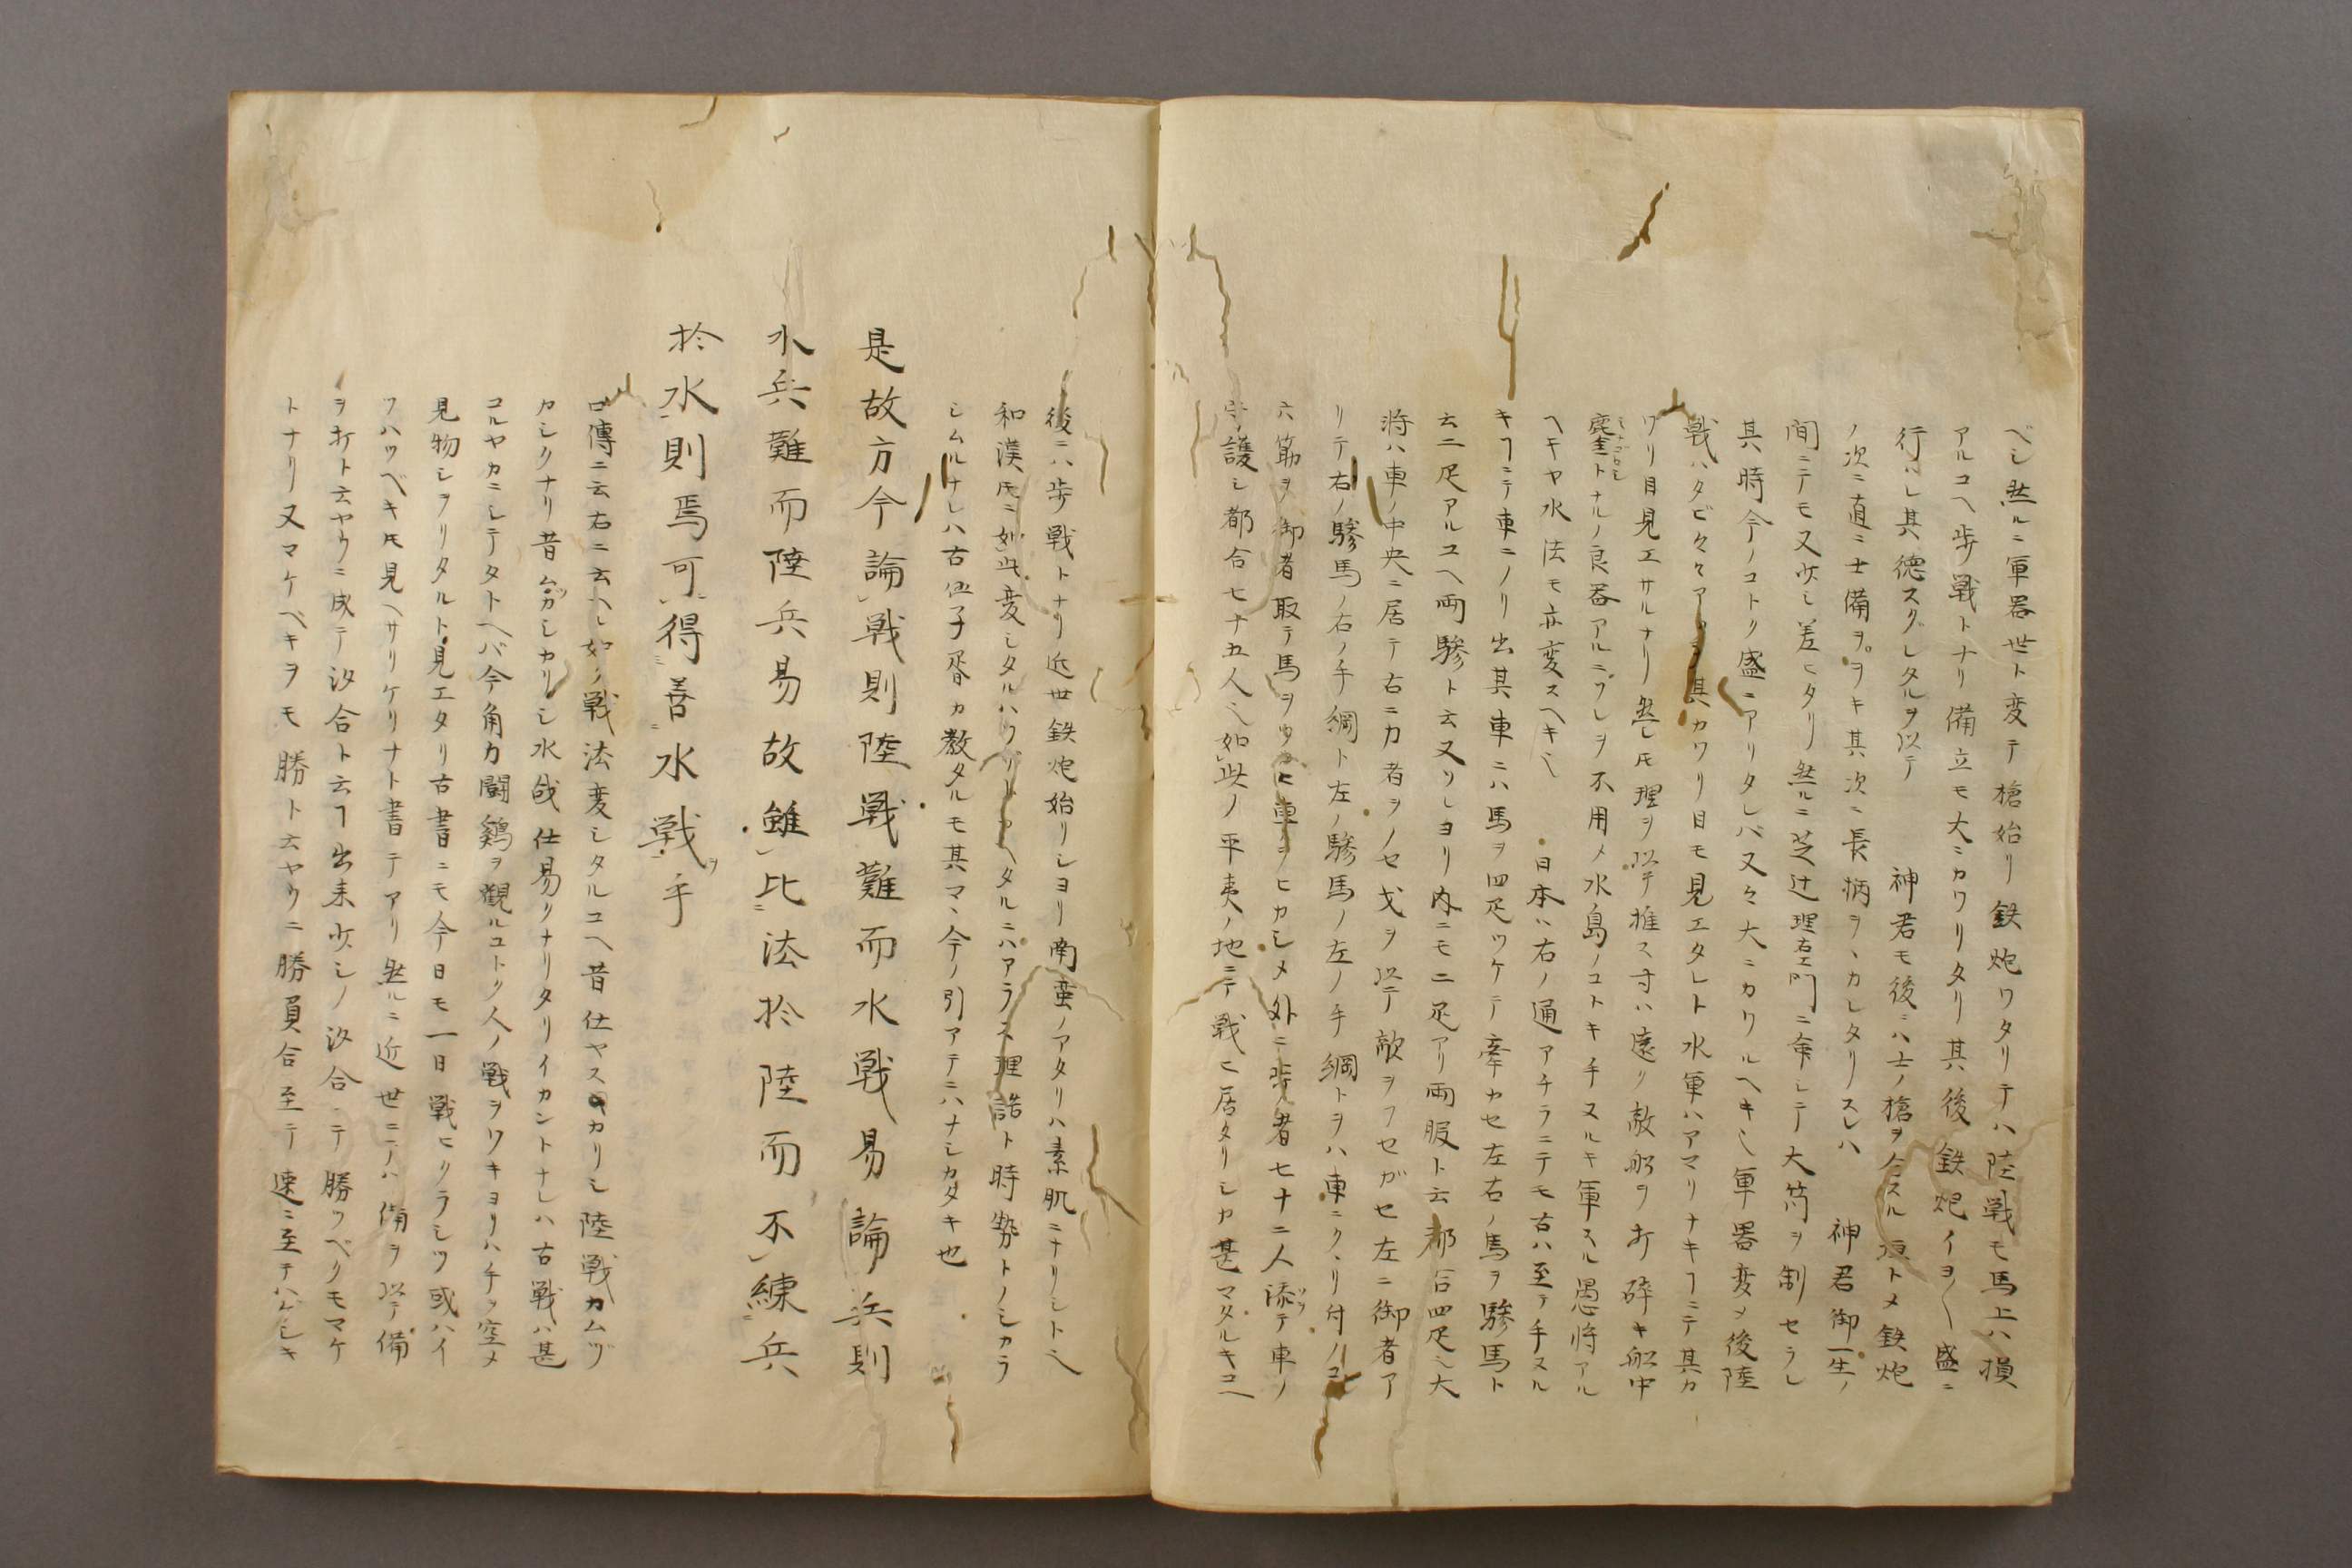 ベシ然ルニ軍器世ト変テ槍始リ鉄炮ワタリテハ陸戦モ馬上ハ損
アルユヘ歩戦トナリ備立モ大ニカワリタリ其後鉄炮イヨ〱盛ニ
行ハレ其徳スグレタルヲ以テ　神君モ後ニハ士ノ槍ヲ トメ鉄炮
ノ次ニ直ニ士備ヲヲキ其次ニ長柄ヲヽカレタリスレハ　神君御一生ノ
間ニテモ又少シ差ヒタリ然ルニ芝辻理右エ門ニ命シテ大筒ヲ制セラレ
其時今ノコトク盛ニアリタレバ又々大ニカワルヘキ也軍器変メ後陸
戦ハタビ々々 其カワリ目モ見エタレト水軍ハアマリナキヿニテ其カ
ワリ目見エサルナリ然レ𪜈理ヲ以テ推ス寸ハ遠ク敵船ヲ打碎キ船中
鏖トナルノ良器アルニソレヲ不用メ水島ノコトキ手ヌルキ軍スル愚将アル
ヘキヤ水法モ亦変スヘキ也　日本ハ右ノ通アチラニテモ古ハ至テ手ヌル
キヿニテ車ニノリ出其車ニハ馬ヲ四疋ツケテ牽カセ左右ノ馬ヲ驂馬ト
云二疋アルユヘ両驂ト云又ソレヨリ内ニモ二疋アリ両服ト云都合四疋也大
将ハ車ノ中央ニ居テ右ニ力者ヲノセ戈ヲ以テ敵ヲフセガセ左ニ御者ア
リテ右ノ驂馬ノ右ノ手綱ト左ノ驂馬ノ左ノ手綱トヲハ車ニクヽリ付ノコ
六筋ヲ御者取テ馬ヲ ヒ車ヲヒカシメ外ニ歩者七十二人添テ車ノ
守護シ都合七十五人也如此ノ平夷ノ地ニテ戦ヒ居タリシカ甚マタルキユヘ
後ニハ歩戦トナリ近世鉄炮始リシヨリ南蛮ノアタリハ素肌ニナリシト也
和漢𪜈ニ如此変シタルハ タルニハアラス理詰ト時勢トノシカラ
シムルナレハ古伍子胥カ教タルモ其マヽ今ノ引アテニハナシカタキ也
是故方今論戦則陸戦難而水戦易論兵則
水兵難而陸兵易故雖比法於陸而不練兵
於水則焉可得善水戦ヲ乎
口傳ニ云右ニ云ヘル如ノ戦法変シタルユヘ昔仕ヤスカリシ陸戦カムツ
カシクナリ昔 シカリシ水戦仕易クナリタリイカントナレハ古戦ハ甚
コルヤカニシテタトヘバ今角力闘鶏ヲ観ルコトク人ノ戦ヲワキヨリハ手ヲ空メ
見物シヲリタルト見エタリ古書ニモ今日モ一日戦ヒクラシツ或ハイ
ツハツベキ𪜈見ヘサリケリナト書テアリ然ルニ近世ニテハ備ヲ以テ備
ヲ打ト云ヤウニ成テ汐合ト云ヿ出来少シノ汐合ニテ勝ツベクモマケ
トナリ又マケベキヲモ勝ト云ヤウニ勝負合至テ速ニ至テハゲシキ